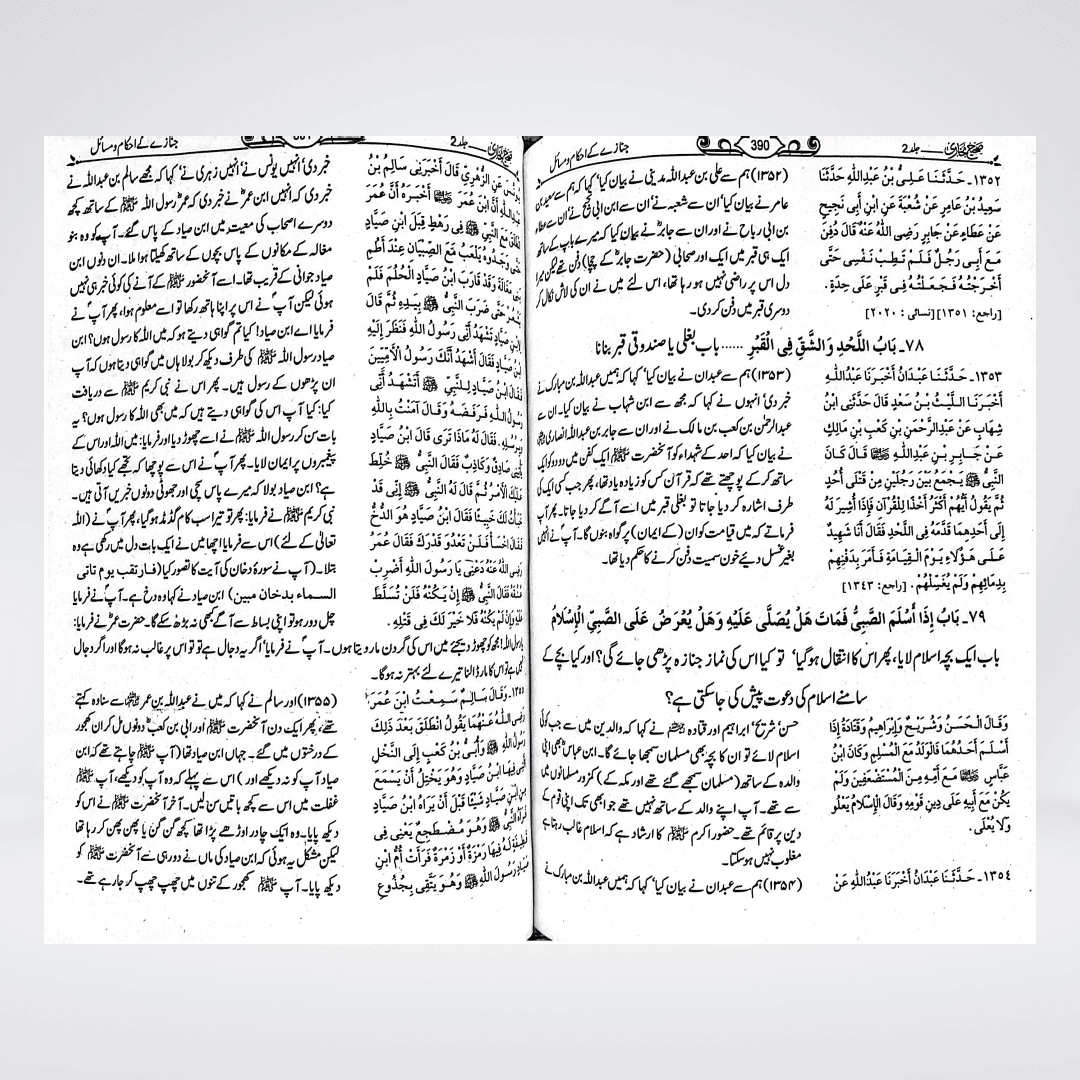 صحیح بخاری جلد 2
390
جنازے کے احکام و مسائل
١٣٥٢ـ حَدَّثَنَا عَلِيُّ بْنُ عَبْدِاللَّهِ حَدَّثَنَا
سَعِيدُ بْنُ عَامِرٍ عَنْ شُعْبَةَ عَنِ ابْنِ أَبِي نَجِيحٍ
عَنْ عَطَاءٍ عَنْ جَابِرٍ رَضِيَ اللَّهُ عَنْهُ قَالَ دُفِنَ
مَعَ أَبِي رَجُلٌ فَلَمْ تَطِبْ نَفْسِي حَتَّى
أَخْرَجْتُهُ فَجَعَلْتُهُ فِي قَبْرٍ عَلَى حِدَةٍ.
[راجع: ١٣٥١] [نسائی: ٢٠٢٠]
(۱۳۵۲) ہم سے علی بن عبداللہ مدینی نے بیان کیا‘ کہا کہ ہم سے سعید بن
عامر نے بیان کیا‘ ان سے شعبہ نے‘ ان سے ابن ابی نجیح نے ان سے عطاء
بن ابی رباح نے اور ان سے جابرؓ نے بیان کیا کہ میرے باپ کے ساتھ
ایک ہی قبر میں ایک اور صحابی (حضرت جابرؓ کے چچا) دفن تھے لیکن میرا
دل اس پر راضی نہیں ہو رہا تھا، اس لئے میں نے ان کی لاش نکال کر
دوسری قبر میں دفن کر دی۔
٧٨ـ بَابُ اللَّحْدِ وَالشَّقِّ فِي الْقَبْرِ ...... باب بغلی یا صندوقی قبر بنانا
١٣٥٣ـ حَدَّثَنَا عَبْدَانُ أَخْبَرَنَا عَبْدُاللَّهِ
أَخْبَرَنَا اللَّيْثُ بْنُ سَعْدٍ قَالَ حَدَّثَنِي ابْنُ
شِهَابٍ عَنْ عَبْدِالرَّحْمَنِ بْنِ كَعْبِ بْنِ مَالِكٍ
عَنْ جَابِرِ بْنِ عَبْدِاللَّهِ ؓ قَالَ كَانَ
النَّبِيُّ ﷺ يَجْمَعُ بَيْنَ رَجُلَيْنِ مِنْ قَتْلَى أُحُدٍ
ثُمَّ يَقُولُ أَيُّهُمْ أَكْثَرُ أَخْذًا لِلْقُرْآنِ فَإِذَا أُشِيرَ لَهُ
إِلَى أَحَدِهِمَا قَدَّمَهُ فِي اللَّحْدِ فَقَالَ أَنَا شَهِيدٌ
عَلَى هَؤُلَاءِ يَوْمَ الْقِيَامَةِ فَأَمَرَ بِدَفْنِهِمْ
بِدِمَائِهِمْ وَلَمْ يُغَسِّلْهُمْ. [راجع: ١٣٤٣]
(۱۳۵۳) ہم سے عبدان نے بیان کیا‘ کہا کہ ہمیں عبداللہ بن مبارک نے
خبر دی‘ انہوں نے کہا کہ مجھ سے ابن شہاب نے بیان کیا۔ ان سے
عبدالرحمٰن بن کعب بن مالک نے اور ان سے جابر بن عبداللہ انصاریؓ
نے بیان کیا کہ احد کے شہداء کو آنحضرت ﷺ ایک کفن میں دو دو کو ایک
ساتھ کر کے پوچھتے تھے کہ قرآن کس کو زیادہ یاد تھا، پھر جب کسی ایک کی
طرف اشارہ کر دیا جاتا تو بغلی قبر میں اسے آگے کر دیا جاتا۔ پھر آپ
فرماتے کہ میں قیامت کو ان (کے ایمان) پر گواہ بنوں گا۔ آپ نے انہیں
بغیر غسل دیئے خون سمیت دفن کرنے کا حکم دیا تھا۔
٧٩ـ بَابُ إِذَا أَسْلَمَ الصَّبِيُّ فَمَاتَ هَلْ يُصَلَّى عَلَيْهِ وَهَلْ يُعْرَضُ عَلَى الصَّبِيِّ الْإِسْلَامُ
باب ایک بچہ اسلام لایا، پھر اس کا انتقال ہو گیا‘ تو کیا اس کی نماز جنازہ پڑھی جائے گی؟ اور کیا بچے کے
سامنے اسلام کی دعوت پیش کی جاسکتی ہے؟
وَقَالَ الْحَسَنُ وَشُرَيْحٌ وَإِبْرَاهِيمُ وَقَتَادَةُ إِذَا
أَسْلَمَ أَحَدُهُمَا فَالْوَلَدُ مَعَ الْمُسْلِمِ وَكَانَ ابْنُ
عَبَّاسٍ ؓ مَعَ أُمِّهِ مِنَ الْمُسْتَضْعَفِينَ وَلَمْ
يَكُنْ مَعَ أَبِيهِ عَلَى دِينِ قَوْمِهِ وَقَالَ الْإِسْلَامُ يَعْلُو
وَلَا يُعْلَى.
حسن‘ شریح‘ ابراہیم اور قتادہ نے کہا کہ والدین میں سے جب کوئی
اسلام لائے تو ان کا بچہ بھی مسلمان سمجھا جائے گا۔ ابن عباسؓ بھی اپنی
والدہ کے ساتھ (مسلمان سمجھے گئے تھے اور مکہ کے) کمزور مسلمانوں میں
سے تھے۔ آپ اپنے والد کے ساتھ نہیں تھے جو ابھی تک اپنی قوم کے
دین پر قائم تھے۔ حضور اکرم ﷺ کا ارشاد ہے کہ اسلام غالب رہتا ہے
مغلوب نہیں ہو سکتا۔
١٣٥٤ـ حَدَّثَنَا عَبْدَانُ أَخْبَرَنَا عَبْدُاللَّهِ عَنْ
(۱۳۵۴) ہم سے عبدان نے بیان کیا‘ کہا کہ ہمیں عبداللہ بن مبارک نے
صحیح بخاری جلد 2
جنازے کے احکام و مسائل
يُونُسَ عَنِ الزُّهْرِيِّ قَالَ أَخْبَرَنِي سَالِمُ بْنُ
عَبْدِاللَّهِ أَنَّ ابْنَ عُمَرَ ؓ أَخْبَرَهُ أَنَّ عُمَرَ
انْطَلَقَ مَعَ النَّبِيِّ ﷺ فِي رَهْطٍ قِبَلَ ابْنِ صَيَّادٍ
حَتَّى وَجَدُوهُ يَلْعَبُ مَعَ الصِّبْيَانِ عِنْدَ أُطُمِ
بَنِي مَغَالَةَ وَقَدْ قَارَبَ ابْنُ صَيَّادٍ الْحُلُمَ فَلَمْ
يَشْعُرْ حَتَّى ضَرَبَ النَّبِيُّ ﷺ بِيَدِهِ ثُمَّ قَالَ
لِابْنِ صَيَّادٍ تَشْهَدُ أَنِّي رَسُولُ اللَّهِ فَنَظَرَ إِلَيْهِ
ابْنُ صَيَّادٍ فَقَالَ أَشْهَدُ أَنَّكَ رَسُولُ الْأُمِّيِّينَ
فَقَالَ ابْنُ صَيَّادٍ لِلنَّبِيِّ ﷺ أَتَشْهَدُ أَنِّي
رَسُولُ اللَّهِ فَرَفَضَهُ وَقَالَ آمَنْتُ بِاللَّهِ
وَبِرُسُلِهِ. فَقَالَ لَهُ مَاذَا تَرَى قَالَ ابْنُ صَيَّادٍ
يَأْتِينِي صَادِقٌ وَكَاذِبٌ فَقَالَ النَّبِيُّ ﷺ خُلِّطَ
عَلَيْكَ الْأَمْرُ ثُمَّ قَالَ لَهُ النَّبِيُّ ﷺ إِنِّي قَدْ
خَبَأْتُ لَكَ خَبِيئًا فَقَالَ ابْنُ صَيَّادٍ هُوَ الدُّخُّ
فَقَالَ اخْسَأْ فَلَنْ تَعْدُوَ قَدْرَكَ فَقَالَ عُمَرُ
رَضِيَ اللَّهُ عَنْهُ دَعْنِي يَا رَسُولَ اللَّهِ أَضْرِبْ
عُنُقَهُ فَقَالَ النَّبِيُّ ﷺ إِنْ يَكُنْهُ فَلَنْ تُسَلَّطَ
عَلَيْهِ وَإِنْ لَمْ يَكُنْهُ فَلَا خَيْرَ لَكَ فِي قَتْلِهِ.
خبر دی‘ انہیں یونس نے‘ انہیں زہری نے‘ کہا کہ مجھے سالم بن عبداللہ نے
خبر دی کہ انہیں ابن عمرؓ نے خبر دی کہ عمرؓ رسول اللہ ﷺ کے ساتھ کچھ
دوسرے اصحاب کی معیت میں ابن صیاد کے پاس گئے۔ آپؐ کو وہ بنو
مغالہ کے مکانوں کے پاس بچوں کے ساتھ کھیلتا ہوا ملا۔ ان دنوں ابن
صیاد جوانی کے قریب تھا۔ اسے آنحضور ﷺ کے آنے کی کوئی خبر ہی نہیں
ہوئی لیکن آپؐ نے اس پر اپنا ہاتھ رکھا تو اسے معلوم ہوا، پھر آپؐ نے
فرمایا اے ابن صیاد! کیا تم گواہی دیتے ہو کہ میں اللہ کا رسول ہوں؟ ابن
صیاد رسول اللہ ﷺ کی طرف دیکھ کر بولا ہاں میں گواہی دیتا ہوں کہ آپ
ان پڑھوں کے رسول ہیں۔ پھر اس نے نبی کریم ﷺ سے دریافت
کیا: کیا آپ اس کی گواہی دیتے ہیں کہ میں بھی اللہ کا رسول ہوں؟ یہ
بات سن کر رسول اللہ ﷺ نے اسے چھوڑ دیا اور فرمایا: میں اللہ اور اس کے
پیغمبروں پر ایمان لایا۔ پھر آپؐ نے اس سے پوچھا کہ تجھے کیا دکھائی دیتا
ہے؟ ابن صیاد بولا کہ میرے پاس سچی اور جھوٹی دونوں خبریں آتی ہیں۔
نبی کریم ﷺ نے فرمایا: پھر تو تیرا سب کام گڈمڈ ہو گیا، پھر آپؐ نے (اللہ
تعالیٰ کے لئے) اس سے فرمایا اچھا میں نے ایک بات دل میں رکھی ہے وہ
بتلا۔ (آپؐ نے سورۂ دخان کی آیت کا تصور کیا (فارتقب یوم تاتی
السماء بدخان مبین) ابن صیاد نے کہا وہ دخ ہے۔ آپؐ نے فرمایا
چل دور ہو تو اپنی بساط سے آگے کبھی نہ بڑھ سکے گا۔ حضرت عمرؓ نے فرمایا:
یا رسول اللہ! مجھ کو چھوڑ دیجئے میں اس کی گردن مار دیتا ہوں۔ آپؐ نے فرمایا‘ اگر یہ دجال ہے تو تو اس پر غالب نہ ہو گا اور اگر دجال
نہیں ہے تو اس کا مار ڈالنا تیرے لئے بہتر نہ ہو گا۔
١٣٥٥ـ وَقَالَ سَالِمٌ سَمِعْتُ ابْنَ عُمَرَ
رَضِيَ اللَّهُ عَنْهُمَا يَقُولُ انْطَلَقَ بَعْدَ ذَلِكَ
رَسُولُ اللَّهِ ﷺ وَأُبَيُّ بْنُ كَعْبٍ إِلَى النَّخْلِ
الَّتِي فِيهَا ابْنُ صَيَّادٍ وَهُوَ يَخْتِلُ أَنْ يَسْمَعَ
مِنِ ابْنِ صَيَّادٍ شَيْئًا قَبْلَ أَنْ يَرَاهُ ابْنُ صَيَّادٍ
فَرَآهُ النَّبِيُّ ﷺ وَهُوَ مُضْطَجِعٌ يَعْنِي فِي
قَطِيفَةٍ لَهُ فِيهَا رَمْزَةٌ أَوْ زَمْرَةٌ فَرَأَتْ أُمُّ ابْنِ
صَيَّادٍ رَسُولَ اللَّهِ ﷺ وَهُوَ يَتَّقِي بِجُذُوعِ
(۱۳۵۵) اور سالم نے کہا کہ میں نے عبداللہ بن عمرؓ سے سنا وہ کہتے
تھے، پھر ایک دن آنحضرت ﷺ اور ابی بن کعبؓ دونوں مل کر ان کھجور
کے درختوں میں گئے۔ جہاں ابن صیاد تھا (آپ ﷺ چاہتے تھے کہ ابن
صیاد آپ کو نہ دیکھے اور) اس سے پہلے کہ وہ آپ کو دیکھے، آپ ﷺ
غفلت میں اس سے کچھ باتیں سن لیں۔ آخر آنحضرت ﷺ نے اس کو
دیکھ پایا۔ وہ ایک چادر اوڑھے پڑا تھا کچھ گن گن یا پھن پھن کر رہا تھا
لیکن مشکل یہ ہوئی کہ ابن صیاد کی ماں نے دور ہی سے آنحضرت ﷺ کو
دیکھ پایا۔ آپ ﷺ کھجور کے تنوں میں چھپ چھپ کر جا رہے تھے۔